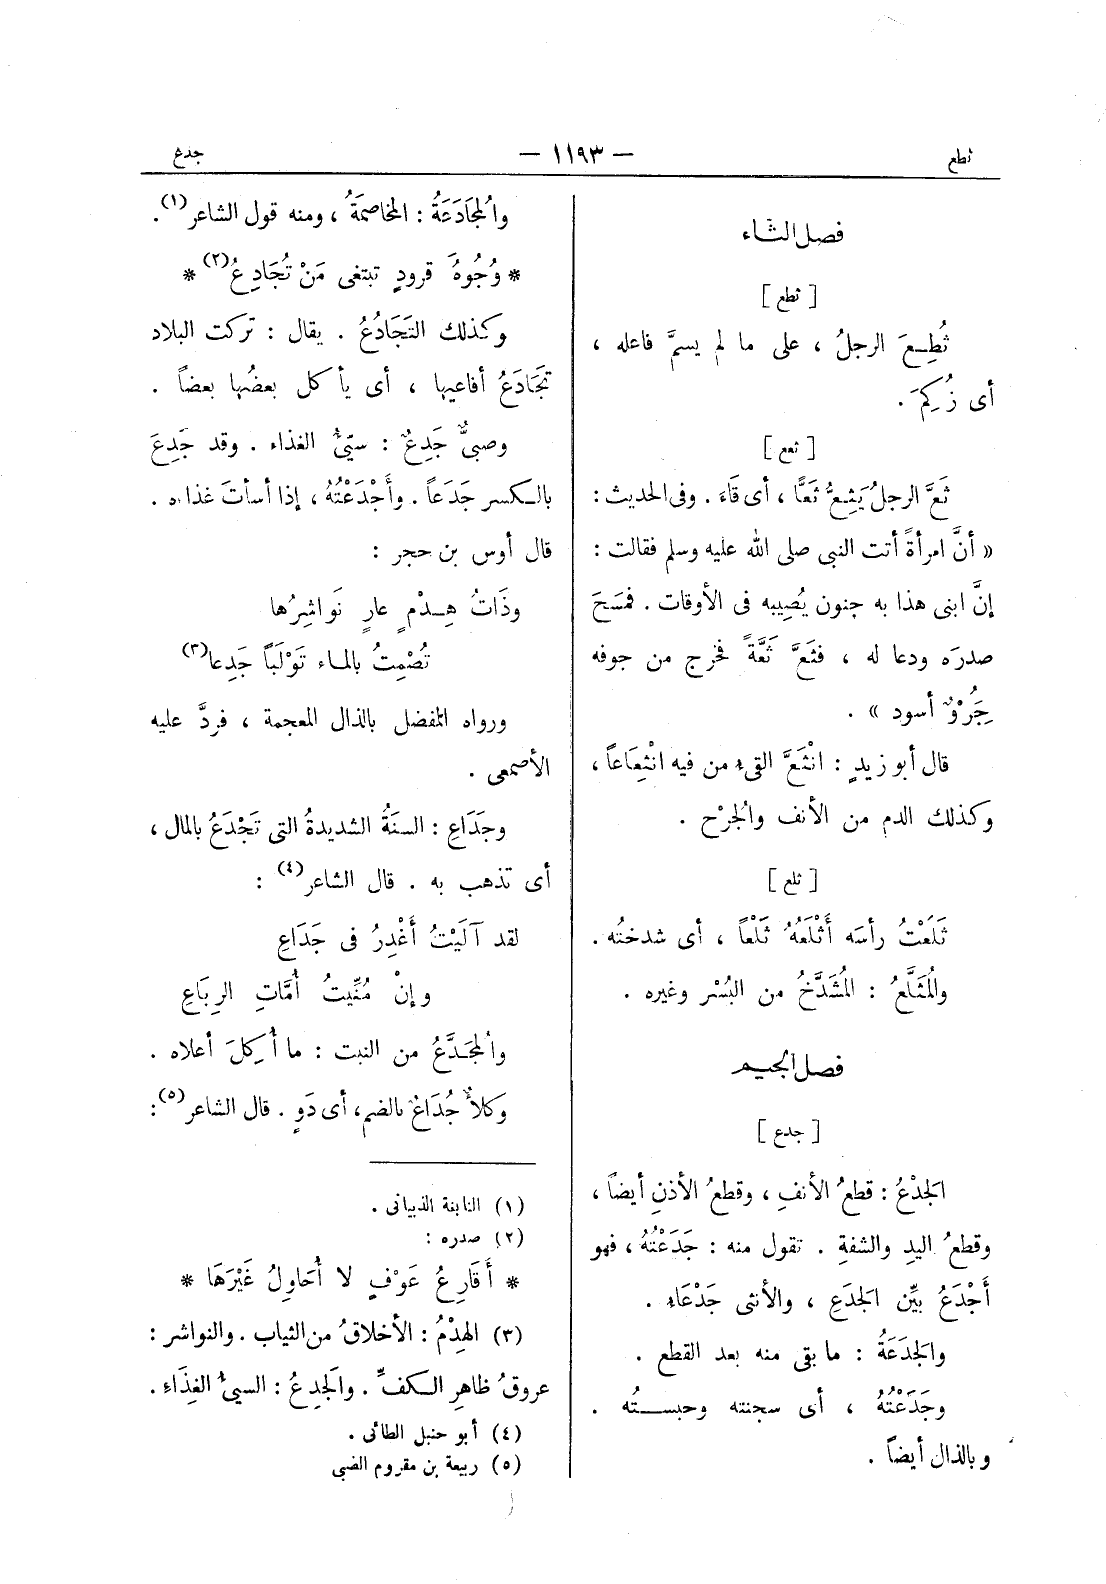 ثطع
— ١١٩٣ —
جدع
فصل الثاء
[ ثطع ]
ثُطِعَ الرجلُ ، على ما لم يسمَّ فاعله ،
أى زُكِمَ .
[ ثعع ]
ثَعَّ الرجلُ يَثِعُّ ثَعًّا ، أى قَاءَ . وفى الحديث :
« أنَّ امرأةً أتت النبى صلى الله عليه وسلم فقالت :
إنَّ ابنى هذا به جنون يُصِيبه فى الأوقات . فمَسَحَ
صدرَه ودعا له ، فثَعَّ ثَعَّةً فخرج من جوفه
جِرُْوٌ أسود » .
قال أبو زيدٍ : انْثَعَّ القىء من فيه انْثِعَاعاً ،
وكذلك الدم من الأنف والجُرْح .
[ ثلع ]
ثَلَعْتُ رأسَه أَثْلَعُهُ ثَلْعاً ، أى شدختُه .
والمُثَلَّعُ : المُشَدَّخُ من البُسْر وغيره .
فصل الجيم
[ جدع ]
الجَدْعُ : قطعُ الأنفِ ، وقطعُ الأذنِ أيضاً ،
وقطعُ اليدِ والشفةِ . تقول منه : جَدَعْتُهُ ، فهو
أَجْدَعُ بيِّن الجَدَعِ ، والأنثى جَدْعَاءُ .
والجَدَعَةُ : ما بقى منه بعد القطع .
وجَدَعْتُهُ ، أى سجنته وحبستُه .
وبالذال أيضاً .
والمُجَادَعَةُ : المخاصمَةُ ، ومنه قول الشاعر(١) .
* وُجُوهُ قرودٍ تبتغى مَنْ تُجَادِعُ(٢) *
وكذلك التَجَادُعُ . يقال : تركت البلاد
تَجَادَعُ أفاعيها ، أى يأكل بعضُها بعضاً .
وصبىٌّ جَدِعٌ : سيّئُ الغذاء . وقد جَدِعَ
بالكسر جَدَعاً . وأَجْدَعْتُهُ ، إذا أسأتَ غذاءه .
قال أوس بن حجر :
وذَاتُ هِدْمٍ عارٍ نَواشِرُها
تُصْمِتُ بالماء تَوْلَباً جَدِعا(٣)
ورواه المفضل بالذال المعجمة ، فردَّ عليه
الأصمعى .
وجَدَاعِ : السنَةُ الشديدةُ التى تَجْدَعُ بالمال ،
أى تذهب به . قال الشاعر(٤) :
لقد آلَيْتُ أَغْدِرُ فى جَدَاعِ
وإنْ مُنِّيتُ أُمَّاتِ الرِبَاعِ
والمُجَدَّعُ من النبت : ما أُكِلَ أعلاه .
وكَلأٌ جُدَاعٌ بالضم، أى دَوٍ . قال الشاعر(٥) :
(١) النابغة الذبيانى .
(٢) صدره :
* أَقَارِعُ عَوْفٍ لا أُحَاوِلُ غَيْرَهَا *
(٣) الهِدْمُ : الأخلاقُ من الثياب . والنواشر :
عروقُ ظاهِرِ الكفِّ . والجَدِعُ : السيئُ الغِذَاءِ .
(٤) أبو حنبل الطائى .
(٥) ربيعة بن مقروم الضبى